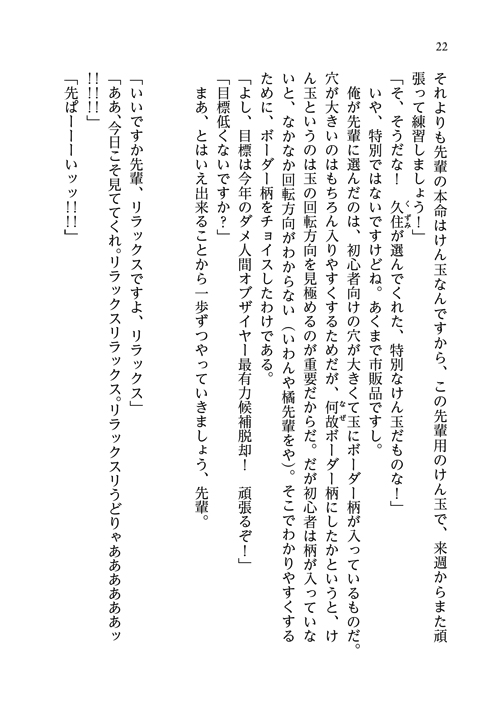 22
それよりも先輩の本命はけん玉なんですから、この先輩用のけん玉で、来週からまた頑
張って練習しましょう！」
「そ、そうだな！　久住が選んでくれた、特別なけん玉だものな！」
くずみ
いや、特別ではないですけどね。あくまで市販品ですし。
俺が先輩に選んだのは、初心者向けの穴が大きくて玉にボーダー柄が入っているものだ。
穴が大きいのはもちろん入りやすくするためだが、何故ボーダー柄にしたかというと、け
なぜ
ん玉というのは玉の回転方向を見極めるのが重要だからだ。だが初心者は柄が入っていな
いと、なかなか回転方向がわからない（いわんや橘先輩をや）。そこでわかりやすくする
ために、ボーダー柄をチョイスしたわけである。
「よし、目標は今年のダメ人間オブザイヤー最有力候補脱却！　頑張るぞ！」
「目標低くないですか？」
まあ、とはいえ出来ることから一歩ずつやっていきましょう、先輩。
「いいですか先輩、リラックスですよ、リラックス」
「ああ、今日こそ見ててくれ。リラックスリラックス。リラックスリうどりゃああああああッ
!!!!!!」
「先ぱーーーいッッ!!!」